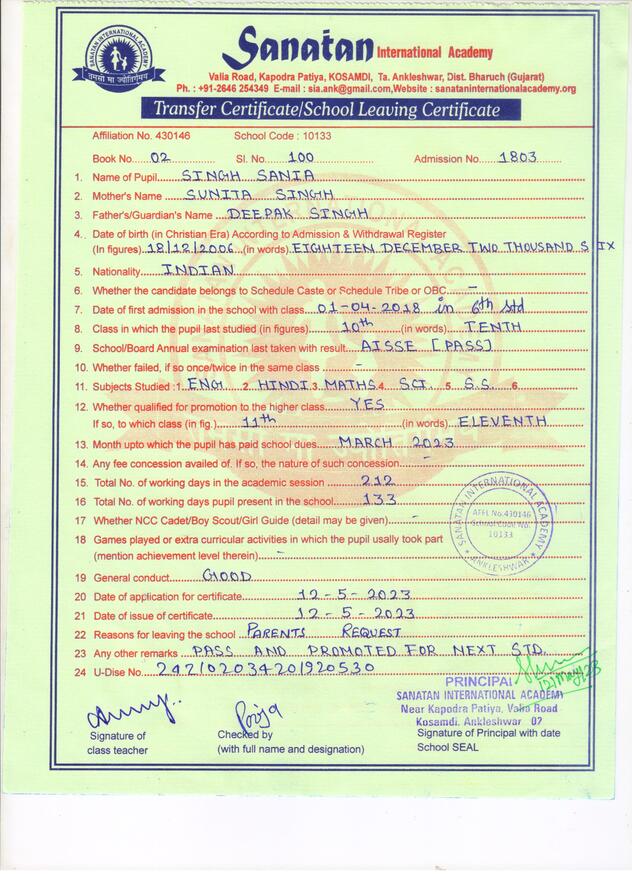 SANATAN INTERNATIONAL ACADEMY
तमसो मा ज्योतिर्गमय
Sanatan International Academy
Valia Road, Kapodra Patiya, KOSAMDI, Ta. Ankleshwar, Dist. Bharuch (Gujarat)
Ph. : +91-2646 254349 E-mail : sia.ank@gmail.com,Website : sanataninternationalacademy.org
Transfer Certificate/School Leaving Certificate
Affiliation No. 430146 School Code : 10133
Book No. 02 Sl. No. 100 Admission No. 1803
1. Name of Pupil SINGH SANIA
2. Mother's Name SUNITA SINGH
3. Father's/Guardian's Name DEEPAK SINGH
4. Date of birth (in Christian Era) According to Admission & Withdrawal Register
(In figures) 18/12/2006 (in words) EIGHTEEN DECEMBER TWO THOUSAND SIX
5. Nationality INDIAN
6. Whether the candidate belongs to Schedule Caste or Schedule Tribe or OBC. -
7. Date of first admission in the school with class 01-04-2018 in 6th std
8. Class in which the pupil last studied (in figures) 10th (in words) TENTH
9. School/Board Annual examination last taken with result AISSE [PASS]
10. Whether failed, if so once/twice in the same class -
11. Subjects Studied :1. ENG. 2. HINDI 3. MATHS 4. SCI. 5. S.S. 6.
12. Whether qualified for promotion to the higher class YES
If so, to which class (in fig.) 11th (in words) ELEVENTH
13. Month upto which the pupil has paid school dues MARCH 2023
14. Any fee concession availed of. If so, the nature of such concession -
15. Total No. of working days in the academic session 212
16 Total No. of working days pupil present in the school 133
17 Whether NCC Cadet/Boy Scout/Girl Guide (detail may be given) -
18 Games played or extra curricular activities in which the pupil usally took part
(mention achievement level therein) -
SANATAN INTERNATIONAL ACADEMY
AFFL No.430146
School Code No.
10133
* ANKLESHWAR *
19 General conduct GOOD
20 Date of application for certificate 12-5-2023
21 Date of issue of certificate 12-5-2023
22 Reasons for leaving the school PARENTS REQUEST
23 Any other remarks PASS AND PROMOTED FOR NEXT STD.
24 U-Dise No. 242102034201920530
12/May/23
PRINCIPAL
SANATAN INTERNATIONAL ACADEMY
Near Kapodra Patiya, Valia Road
Kosamdi, Ankleshwar 02
Pooja
Signature of class teacher
Checked by (with full name and designation)
Signature of Principal with date School SEAL